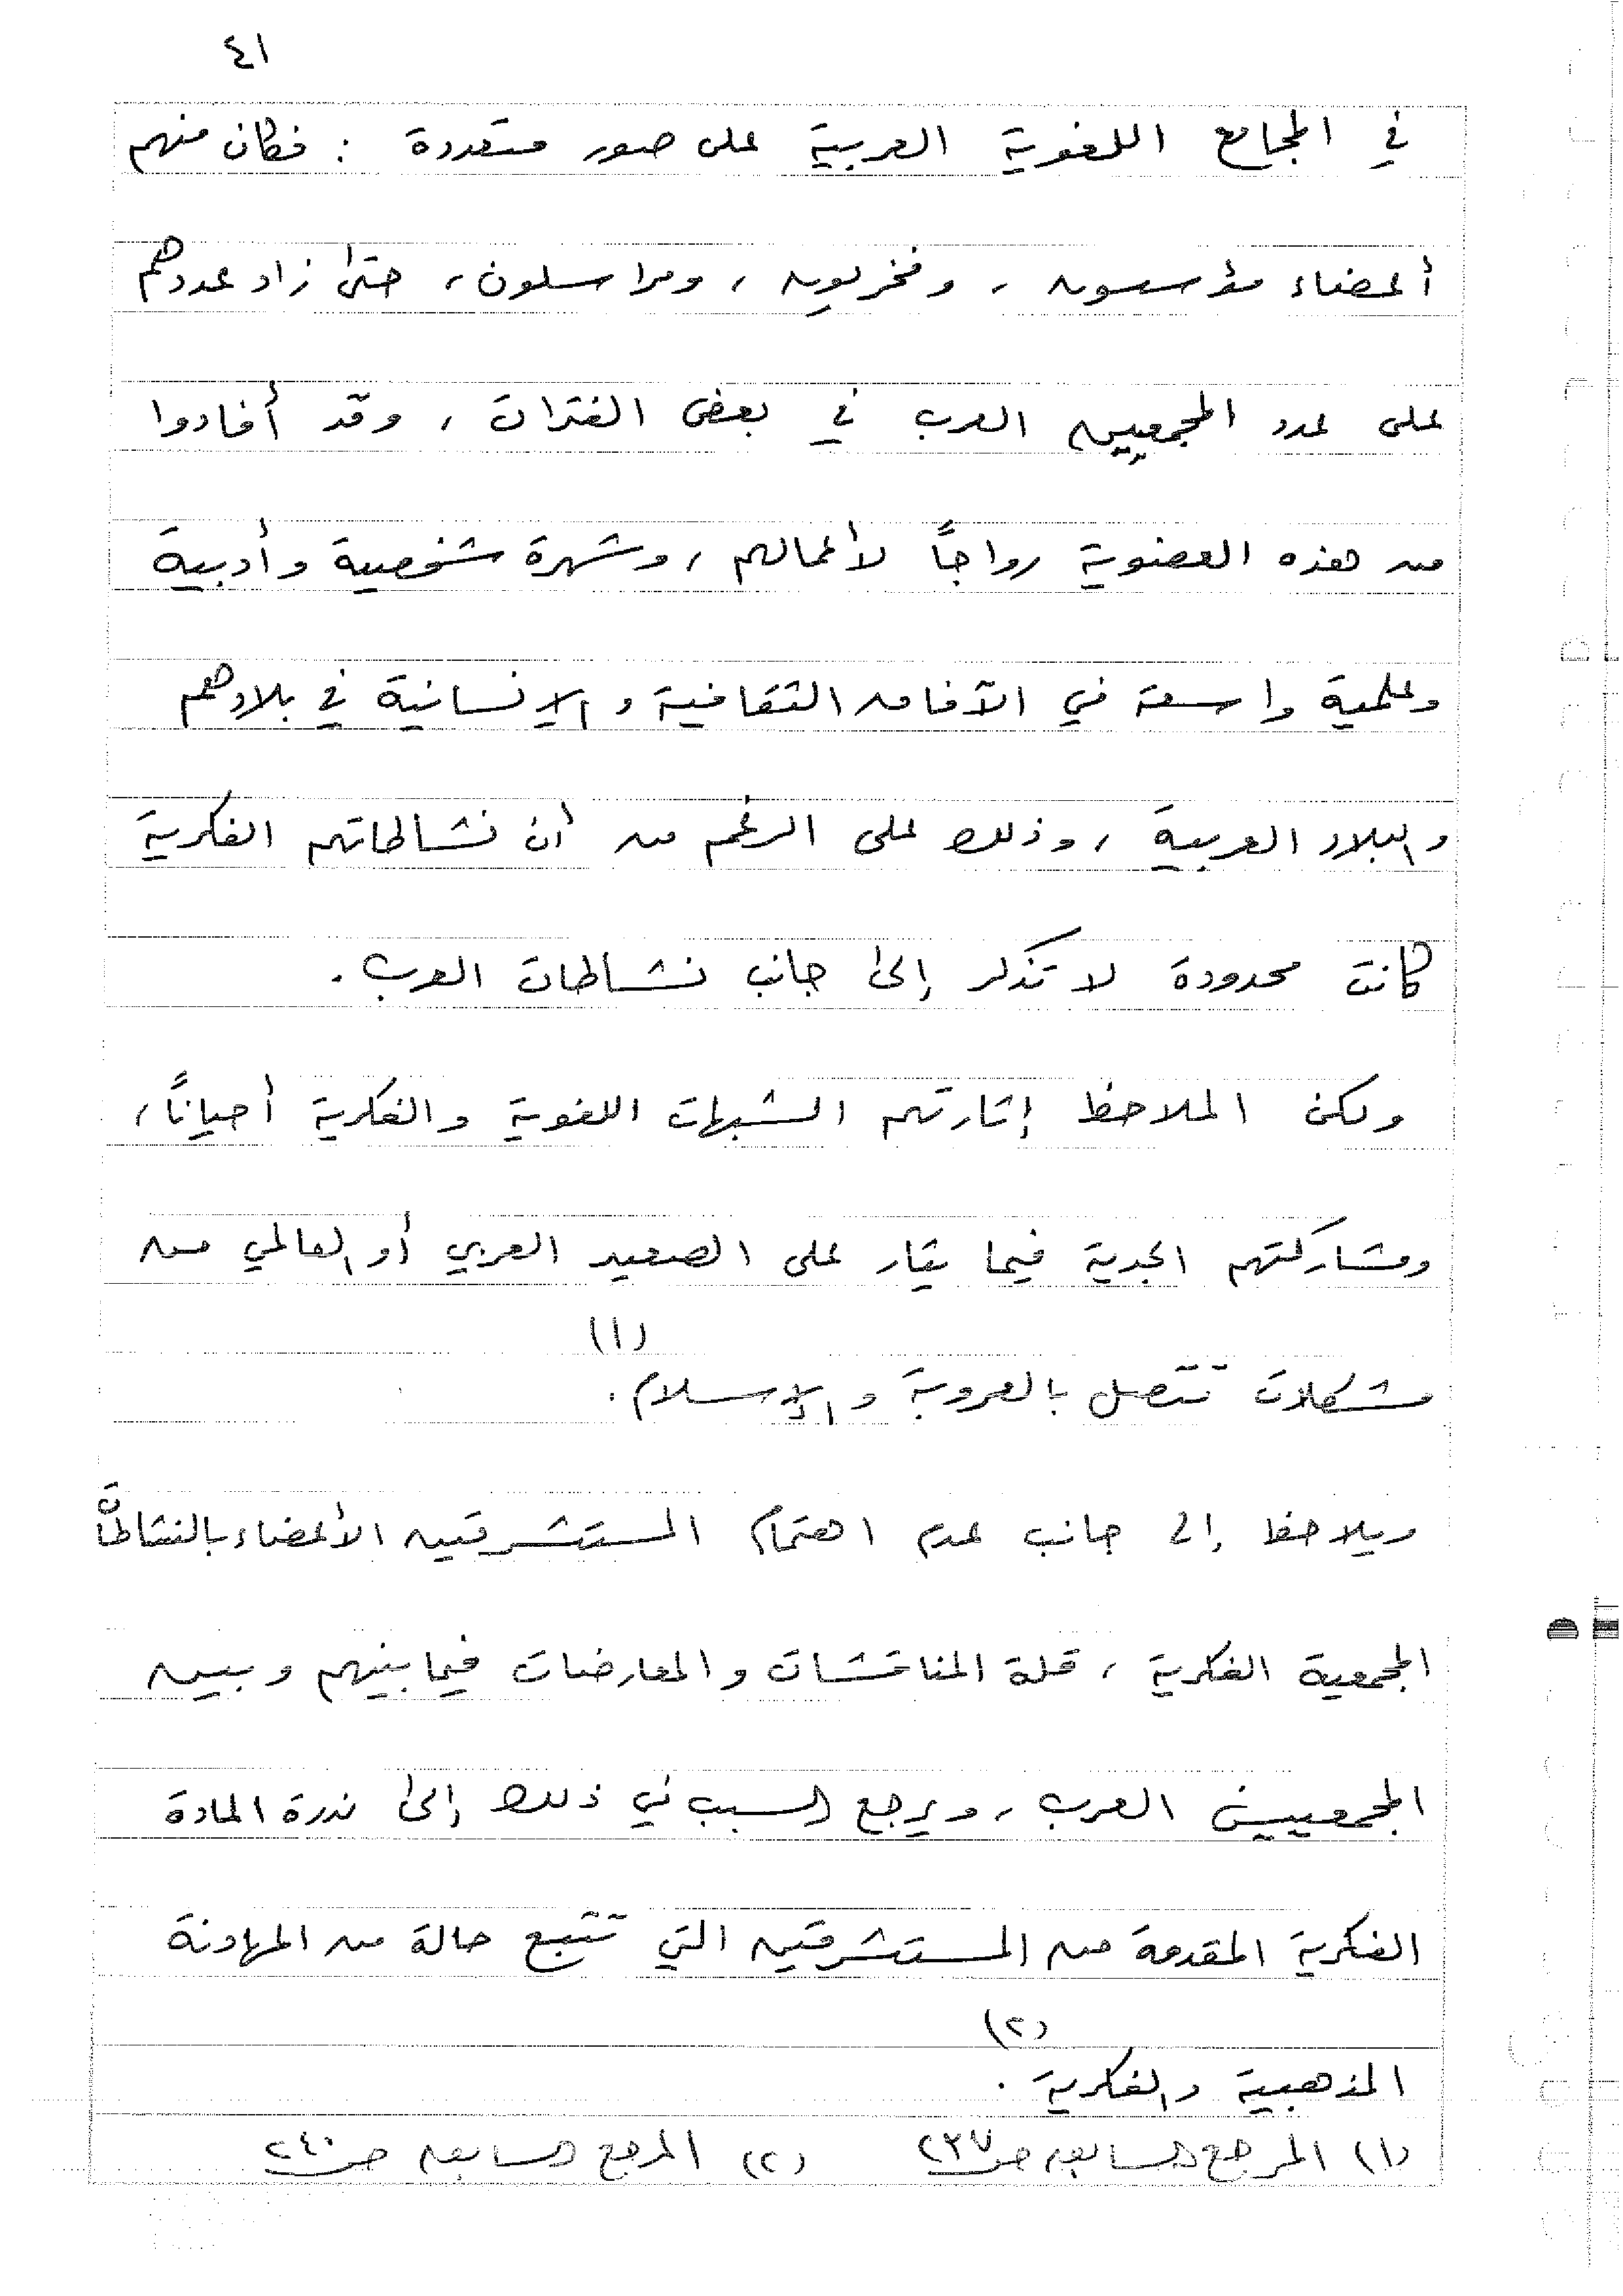 ٤١
في المجامع اللغوية العربية على صور متعددة : فكان منهم
أعضاء مؤسسون ، وفخريون ، ومراسلون ، حتى زاد عددهم
على عدد المجمعيين العرب في بعض الفترات ، وقد أفادوا
من هذه العضوية رواجاً لأعمالهم ، وشهرة شخصية وأدبية
وعلمية واسعة في الآفاق الثقافية والإنسانية في بلادهم
والبلاد العربية ، وذلك على الرغم من أن نشاطاتهم الفكرية
كانت محدودة لا تذكر إلى جانب نشاطات العرب .
ولكن الملاحظ إثارتهم الشبهات اللغوية والفكرية أحياناً ،
ومشاركتهم الجدية فيما يثار على الصعيد العربي أو العالمي من
مشكلات تتصل بالعروبة والإسلام . (١)
ويلاحظ إلى جانب عدم اهتمام المستشرقين الأعضاء بالنشاطات
المجمعية الفكرية ، قلة المناقشات والمعارضات فيما بينهم وبين
المجمعيين العرب ، ويرجع السبب في ذلك إلى ندرة المادة
الفكرية المقدمة من المستشرقين التي تتبع حالة من المهادنة
المذهبية والفكرية . (٢)
(١) المرجع السابق ص ٢٣٧ (٢) المرجع السابق ص ٢٤٠